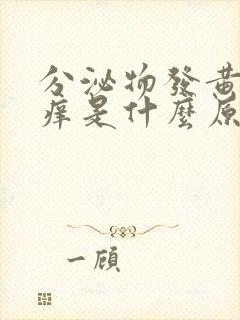 分泌物發黃
痒是什麼原
一顧